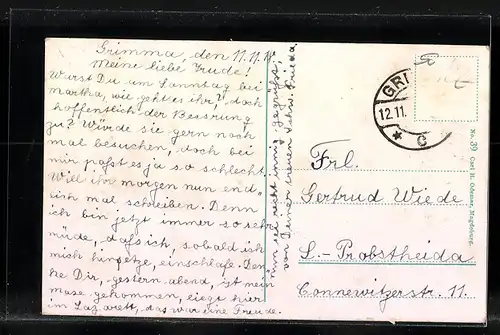 Grimma, den 11.11.
Meine liebe Trude!
Warst Du am Sonntag bei
Martha, wie geht es ihr?, doch
hoffentlich der Bessrung
zu? Würde sie gern noch
mal besuchen, doch bei
mir paßt es ja so schlecht.
Will ihr morgen nun end-
lich mal schreiben. Denn
ich bin jetzt immer so sehr
müde, daß ich, sobald ich
mich hinsetze, einschlafe. Den-
ke Dir, gestern abend, ist mein
gekommen, liegt hier
im Lazarett, das war eine Freude.
Nun sei recht innig gegrüßt
von Deiner treuen Schw. Frieda.
GRI
12.11.
* c
Frl.
Gertrud Wiede
L.- Probstheida
Connewitzerstr. 11.
No. 39 Carl H. Odemar, Magdeburg.